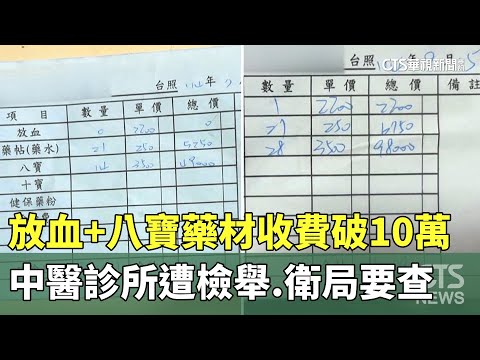 CTS華視新聞
台照 114年
項目 數量 單價 總價
放血 0 2200 0
藥帖(藥水) 21 250 5250
八寶 14 3500 49000
十寶
健保藥粉
台照 年 月
數量 單價 總價 備註
1 2200 2200
27 250 6750
28 3500 98000
放血+八寶藥材收費破10萬
中醫診所遭檢舉.衛局要查
CTS
NEWS